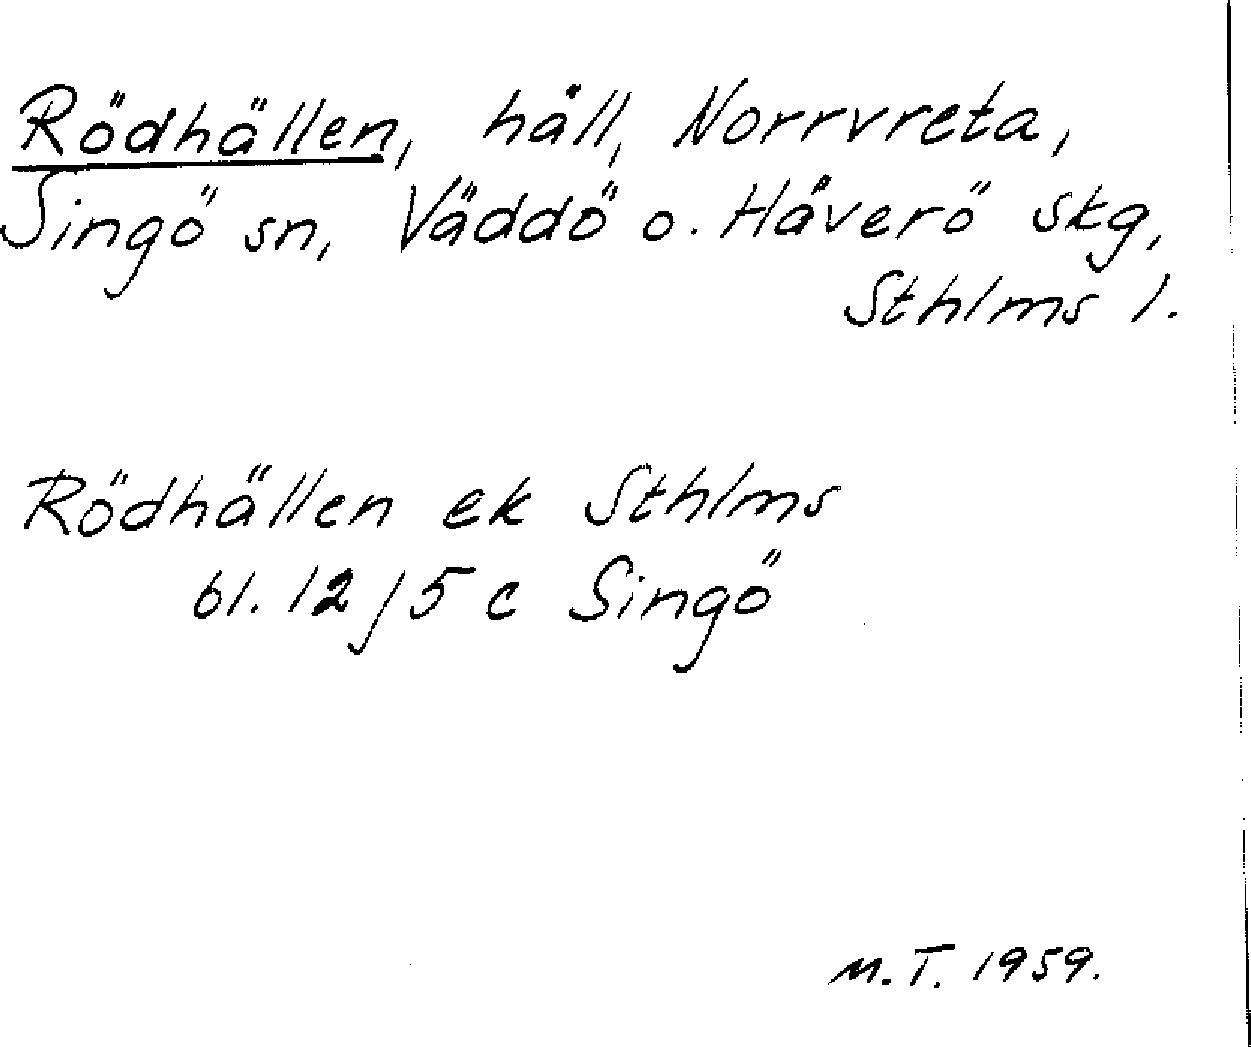 Rödhällen, håll, Norrvreta,
Singö sn, Väddö o. Håverö skg,
Sthlms l.
Rödhällen ek Sthlms
bl. 12/5 c Singö
M.T. 1959.